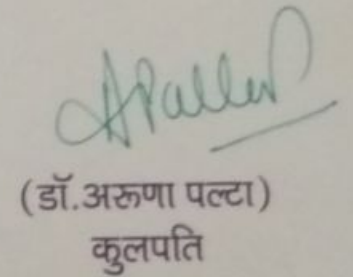 (डॉ.अरूणा पल्टा)
कुलपति